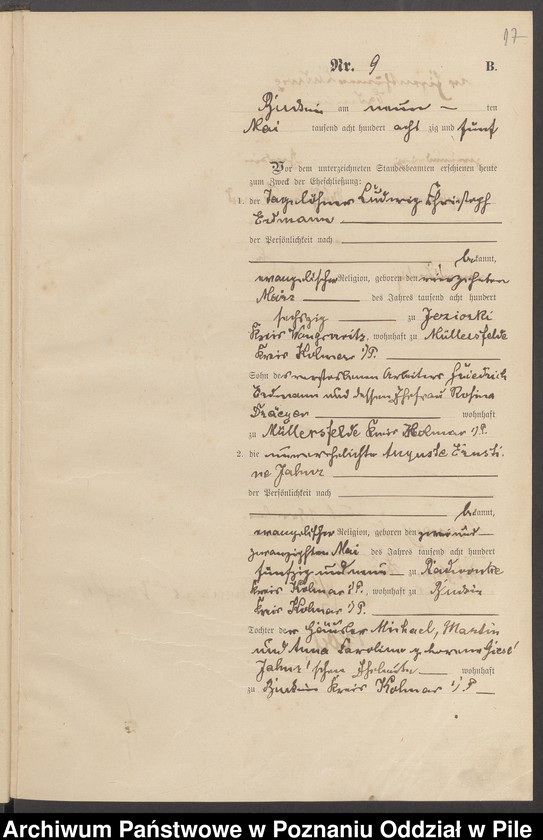 97
Nr. 9 B.
Budsin am neun ten
Mai tausend acht hundert acht zig und fünf
Vor dem unterzeichneten Standesbeamten erschienen heute
zum Zweck der Eheschließung:
1. der Tagelöhner Ludwig Christoph
Erdmann
der Persönlichkeit nach
bekannt,
evangelischer Religion, geboren den vierzehnten
März des Jahres tausend acht hundert
sechszig zu Jeziorki
Kreis Wongrowitz, wohnhaft zu Müllersfelde
Kreis Kolmar i/P.
Sohn des verstorbenen Arbeiters Friedrich
Erdmann und dessen Ehefrau Rosine
Draeger wohnhaft
zu Müllersfelde Kreis Kolmar i/P.
2. die unverehelichte Auguste Ernsti-
ne Jahnz
der Persönlichkeit nach
bekannt,
evangelischer Religion, geboren den zweiund-
zwanzigsten Mai des Jahres tausend acht hundert
fünfzig und neun zu Radwonke
Kreis Kolmar i/P., wohnhaft zu Budsin
Kreis Kolmar i/P.
Tochter der Häusler Michael, Martin
und Anna Carolina geborene
Jahnz'schen Eheleute wohnhaft
zu Budsin Kreis Kolmar i/P
Archiwum Państwowe w Poznaniu Oddział w Pile